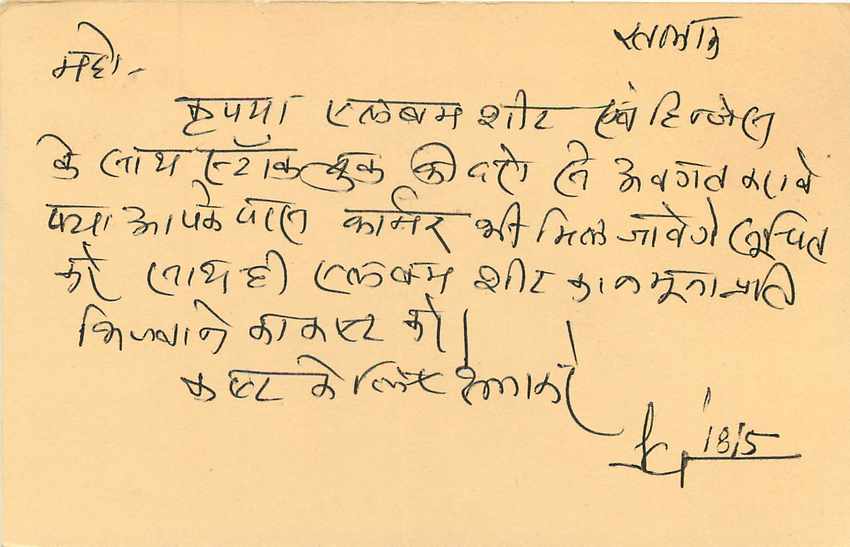 रतलाम
महो.
कृपया एलबम शीट एवं हिन्जेस
के साथ स्टॉक बुक की दरो से अवगत करावे
क्या आपके पास कार्मर भी मिल जावेगे सूचित
करे साथ ही एलबम शीट का नमूना प्रति
भिजवाने का कष्ट करे।
कष्ट के लिए क्षमा करे
18/5